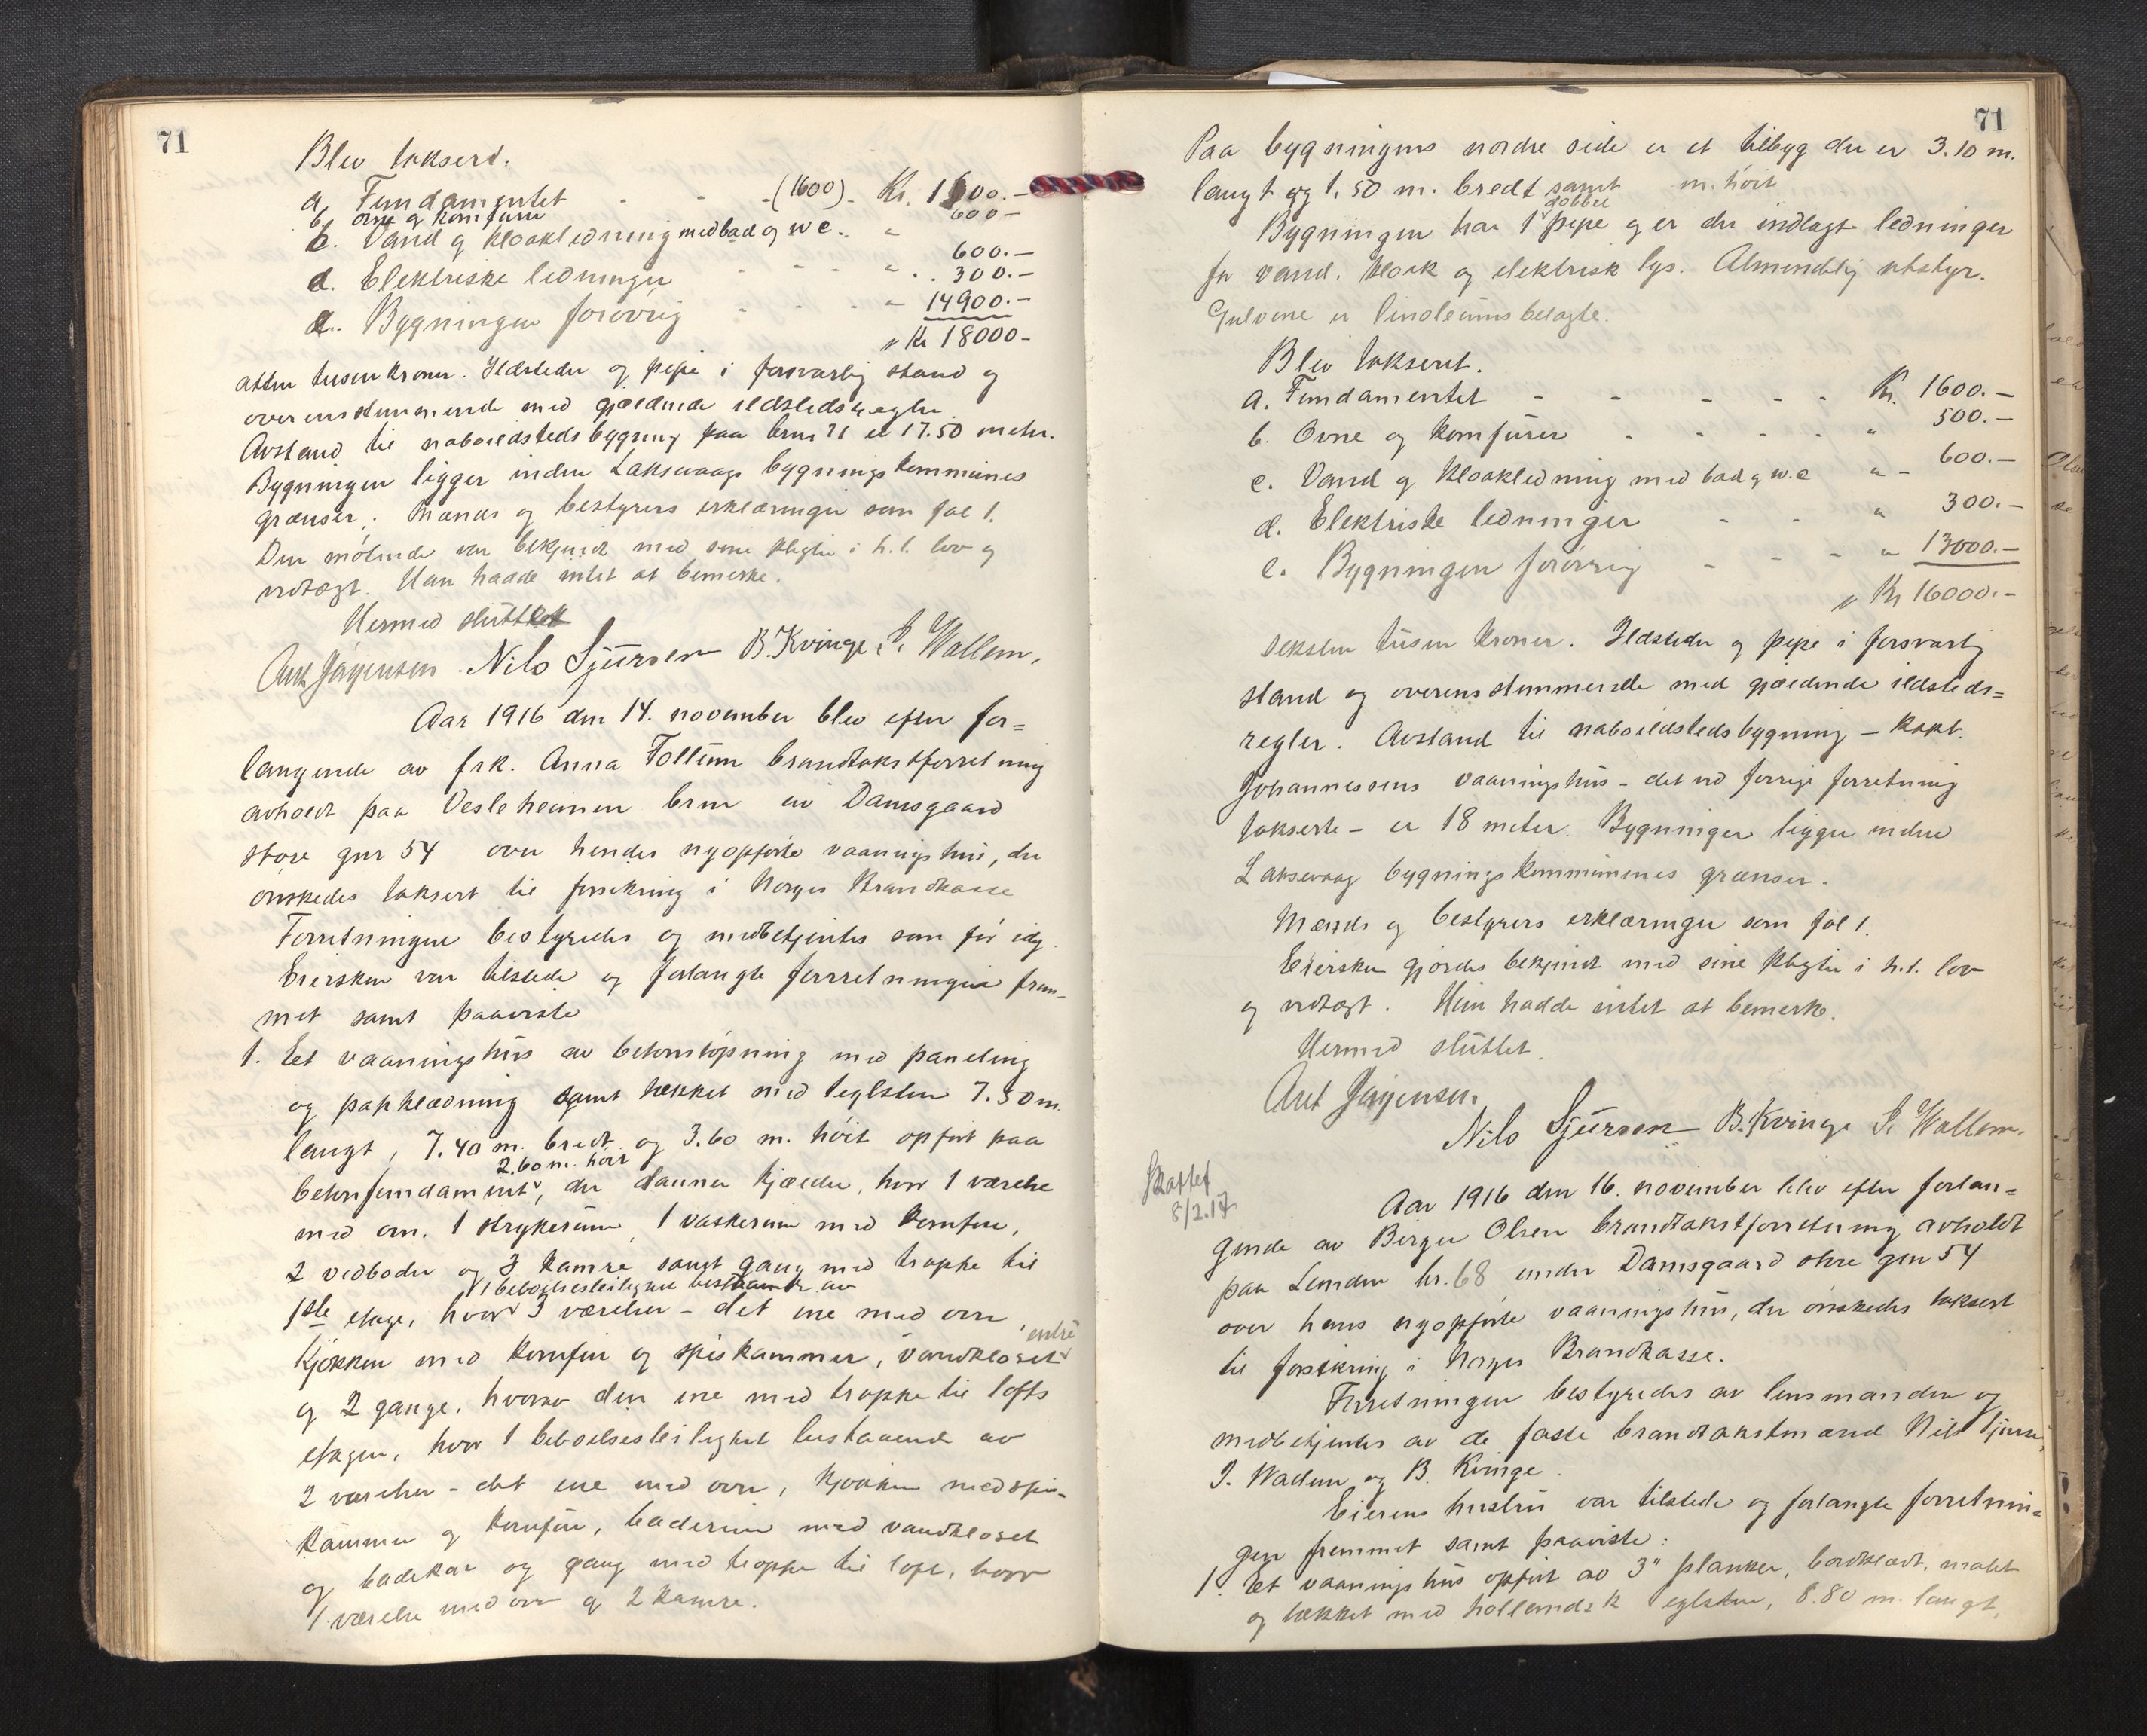 71
Blev taksert.
a. Fundamentet - - (1600) - Kr. 1600.-
b. ovne og komfurer 600-
c. Vand og kloakledning med bad og w c. " 600.-
d. Elektriske ledninger - - - " 300.-
e. Bygningen forøvrig - - - " 14900.-
" Kr 18000-
atten tusen kroner. Ildsteder og pipe i forsvarlig stand og
overensstemmende med gjældende ildstedsregler.
Avstand til naboildstedsbygning paa brnr 71 er 17.50 meter.
Bygningen ligger inden Laksevaags bygningskommunes
grænser. Mænds og bestyrers erklæringer som fol 1.
Den møtende var bekjendt med sine pligter i h.t. lov og
vedtægt. Han hadde intet at bemerke.
Hermed sluttet
Ant Jørgensen. Nils Sjursen B. Kvinge. I. Wallem.
Aar 1916 den 14. november blev efter for=
langende av frk. Anna Follinn brandtakstforretning
avholdt paa Vesleheimen brnr av Damsgaard
store gnr 54 over hendes nyopførte vaaningshus, der
ønskedes taksert til forsikring i Norges Brandkasse
Forretningen bestyredes og medbetjentes som før idg.
Eiersken var tilstede og forlangte forretningen frem-
met samt paaviste
1. Et vaaningshus av betonstøpning med paneling
og papklædning samt tækket med teglsten 7.50 m.
langt, 7.40 m. bredt og 3.60 m. høit opført paa
2.60 m. høit
betonfundament, der danner kjælder, hvor 1 værelse
med ovn. 1 strykerum, 1 vaskerum med komfur,
2 vedboder og 3 kamre samt gang med trappe til
1 beboelsesleilighet bestaaende av
1ste etage, hvor 3 værelser - det ene med ovn,
kjøkken med komfur og spiskammer, vandkloset entré
og 2 gange, hvorav den ene med trappe til lofts
etagen, hvor 1 beboelsesleilighet bestaaende av
2 værelser - det ene med ovn, kjøkken med spis-
kammer og komfur, baderum med vandkloset
og badekar og gang med trappe til loft, hvor
1 værelse med ovn og 2 kamre.
71
Paa bygningens nordre side er et tilbyg der er 3.10 m.
langt og 1.50 m. bredt samt m. høit
dobbel
Bygningen har 1 pipe og er der indlagt ledninger
for vand, kloak og elektrisk lys. Almindelig utstyr.
Gulvene er linoleumsbelagte.
Blev taksert.
a. Fundamentet - - - - - Kr. 1600.-
b. Ovne og komfurer - - - - " 500.-
c. Vand og kloakledning med bad og w.c " - 600.-
d. Elektriske ledninger - - " 300.-
e. Bygningen forøvrig - - - " 13000.-
" Kr 16000.-
seksten tusen kroner. Ildsteder og pipe i forsvarlig
stand og overensstemmende med gjældende ildsteds=
regler. Avstand til naboildstedsbygning - kapt.
Johannessens vaaningshus - det ved forrige forretning
takserte - er 18 meter. Bygningen ligger inden
Laksevaag bygningskommunes grænser.
Mænds og bestyrers erklæringer som fol 1.
Eiersken gjordes bekjendt med sine pligter i h.t. lov
og vedtægt. Hun hadde intet at bemerke.
Hermed sluttet.
Ant Jørgensen.
Nils Sjursen B. Kvinge I. Wallem.
8/2.17
Aar 1916 den 16. november blev efter forlan=
gende av Birger Olsen brandtakstforretning avholdt
paa Lunden br. 68 under Damsgaard store gnr 54
over hans nyopførte vaaningshus, der ønskedes taksert
til forsikring i Norges Brandkasse.
Forretningen bestyredes av lensmanden og
medbetjentes av de faste brandtakstmænd Nils Sjursen,
I. Wallem og B. Kvinge.
Eierens hustru var tilstede og forlangte forretnin=
gen fremmet samt paaviste:
1. Et vaaningshus opført av 3" planker, bordklædt, malet
og tækket med hollandsk teglsten, 8.80 m. langt,